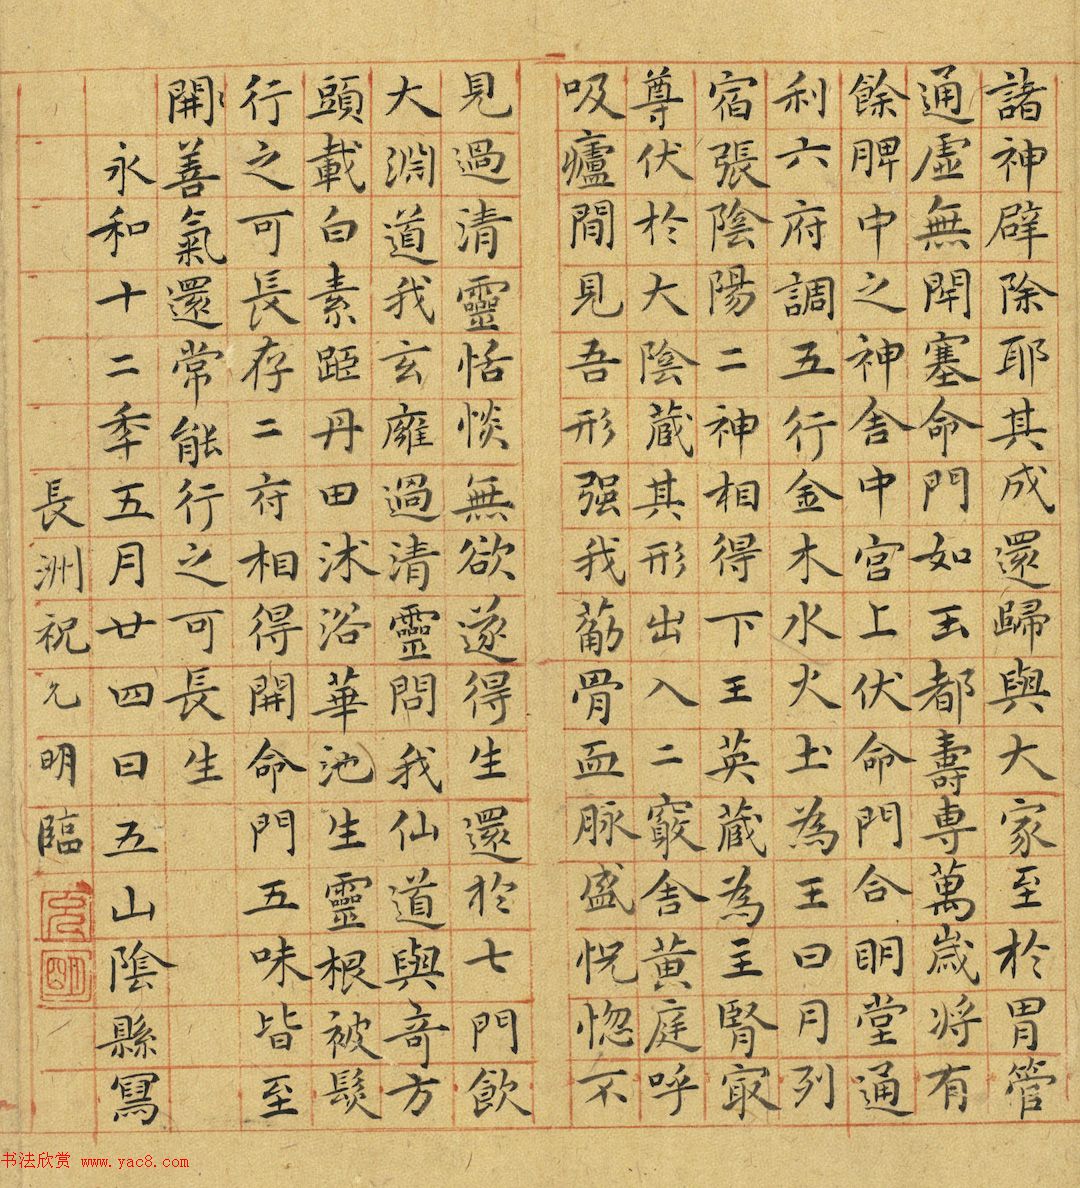 諸神辟除耶其成還歸與大家至於胃管
通虛無閈塞命門如玉都壽專萬歲將有
餘脾中之神舍中宮上伏命門合明堂通
利六府調五行金木水火土為王日月列
宿張陰陽二神相得下王英藏為主腎㝡
尊伏於大陰藏其形出入二竅舍黃庭呼
吸廬間見吾形强我葯骨血脉盛怳惚不
見過清靈恬惔無欲遂得生還於七門飲
大淵道我玄廱過清靈問我仙道與奇方
頭載白素距丹田沭浴華池生靈根被髮
行之可長存二府相得開命門五味皆至
開善氣還常能行之可長生
永和十二年五月廿四日五山陰縣寫
長洲祝允明臨
允明
书法欣赏 www.yac8.com